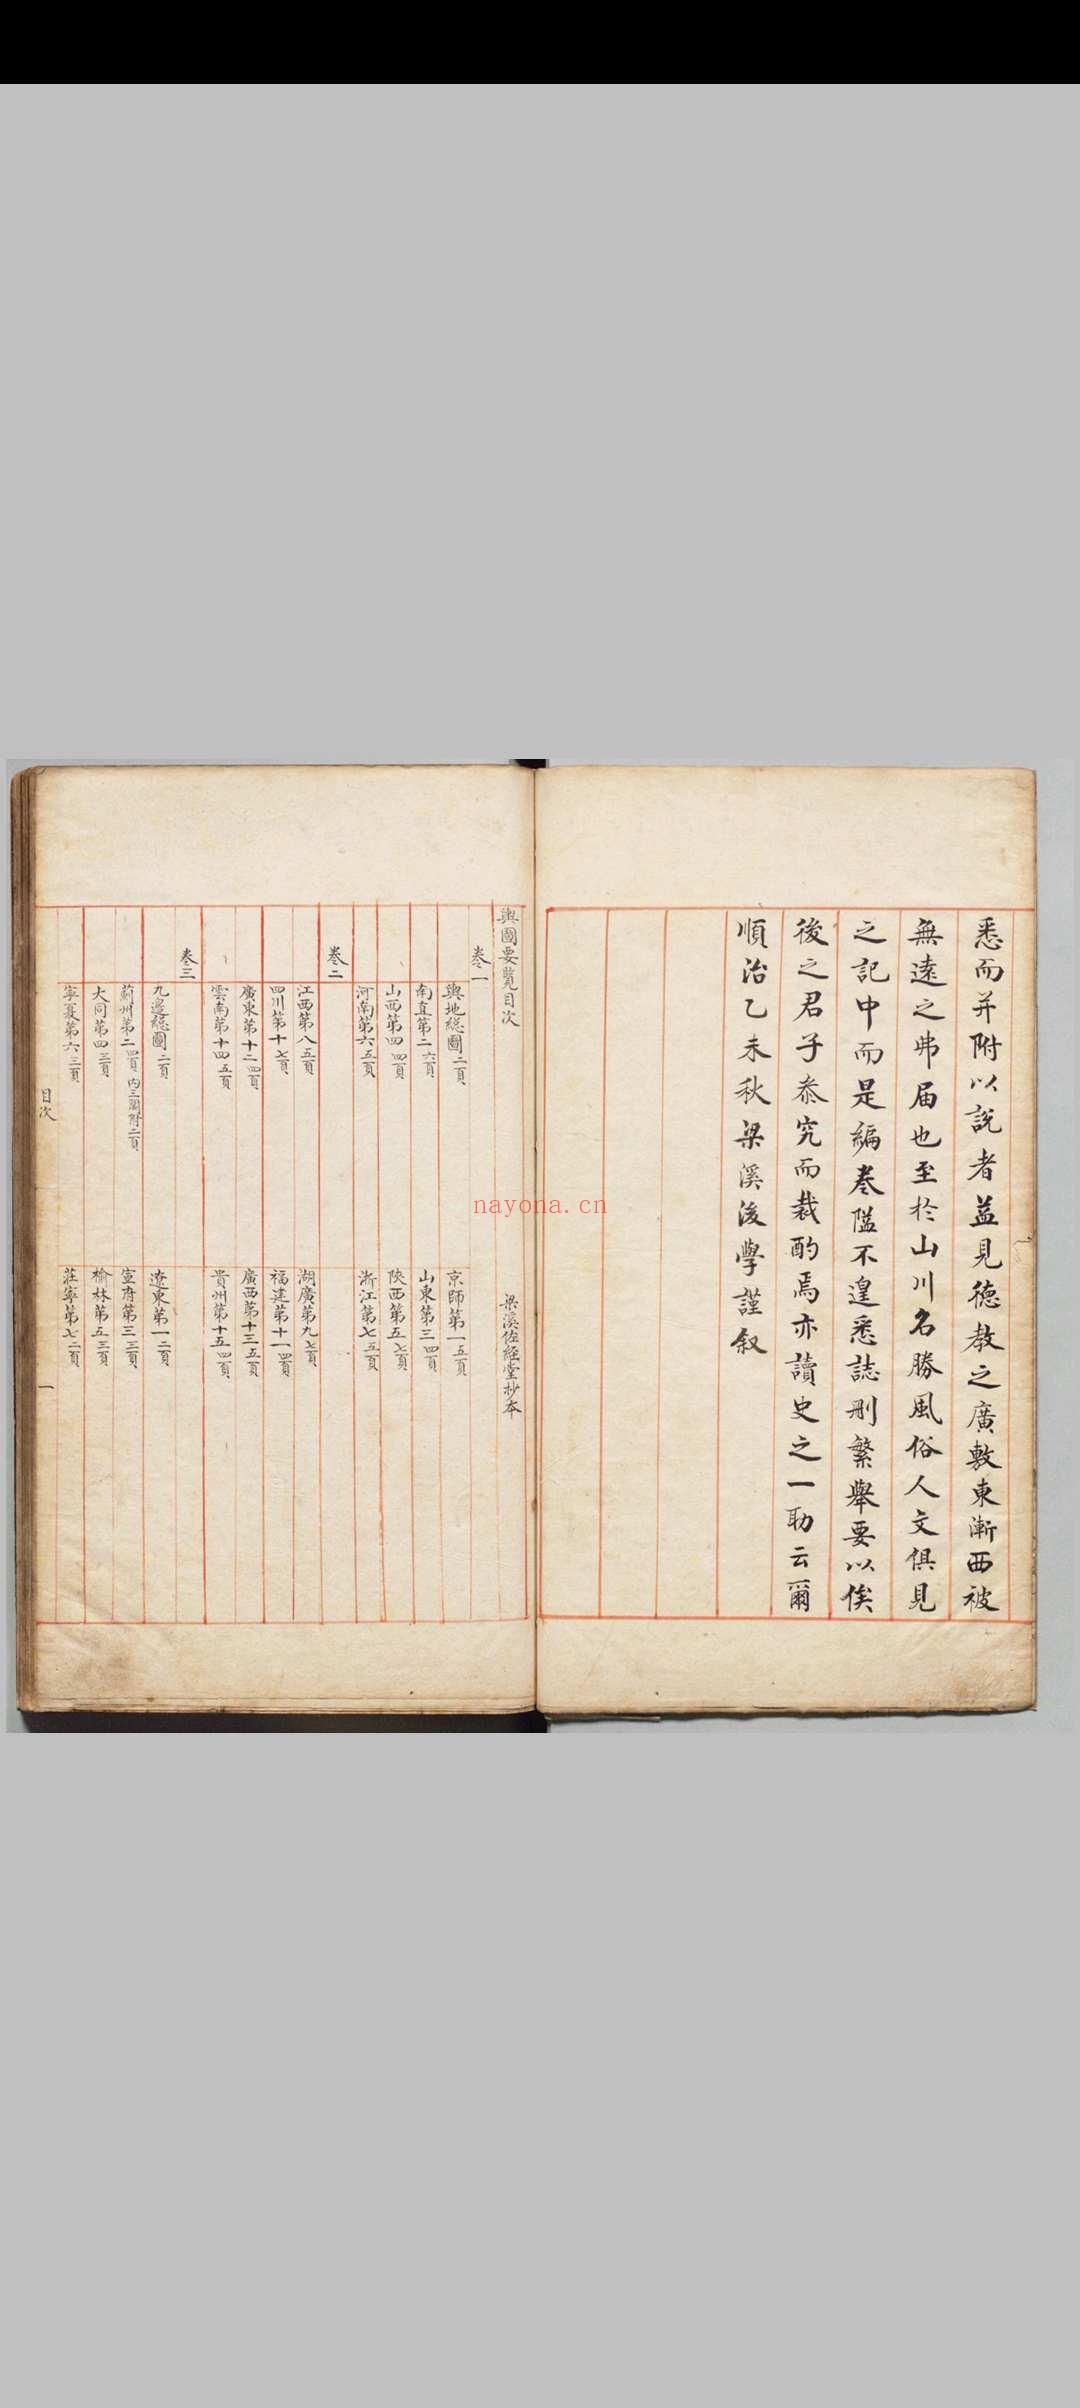 悉而并附以說者益見德教之廣敷東漸西被
無遠之弗届也至於山川名勝風俗人文俱見
之記中而是編卷隘不遑悉誌刪繁舉要以俟
後之君子叅究而裁酌焉亦讀史之一助云爾
順治乙未秋梁溪後學謹叙
輿圖要覽目次 梁溪佐經堂抄本
卷一
輿地總圖二頁 京師第一五頁
南直第二六頁 山東第三四頁
山西第四四頁 陝西第五七頁
河南第六五頁 浙江第七五頁
卷二
江西第八五頁 湖廣第九七頁
四川第十七頁 福建第十一四頁
廣東第十二四頁 廣西第十三五頁
雲南第十四五頁 貴州第十五四頁
卷三
九邊總圖二頁 遼東第一二頁
薊州第二四頁 內三關附二頁 宣府第三三頁
大同第四三頁 榆林第五三頁
寧夏第六三頁 莊寧第七二頁
目次 一
nayona.cn